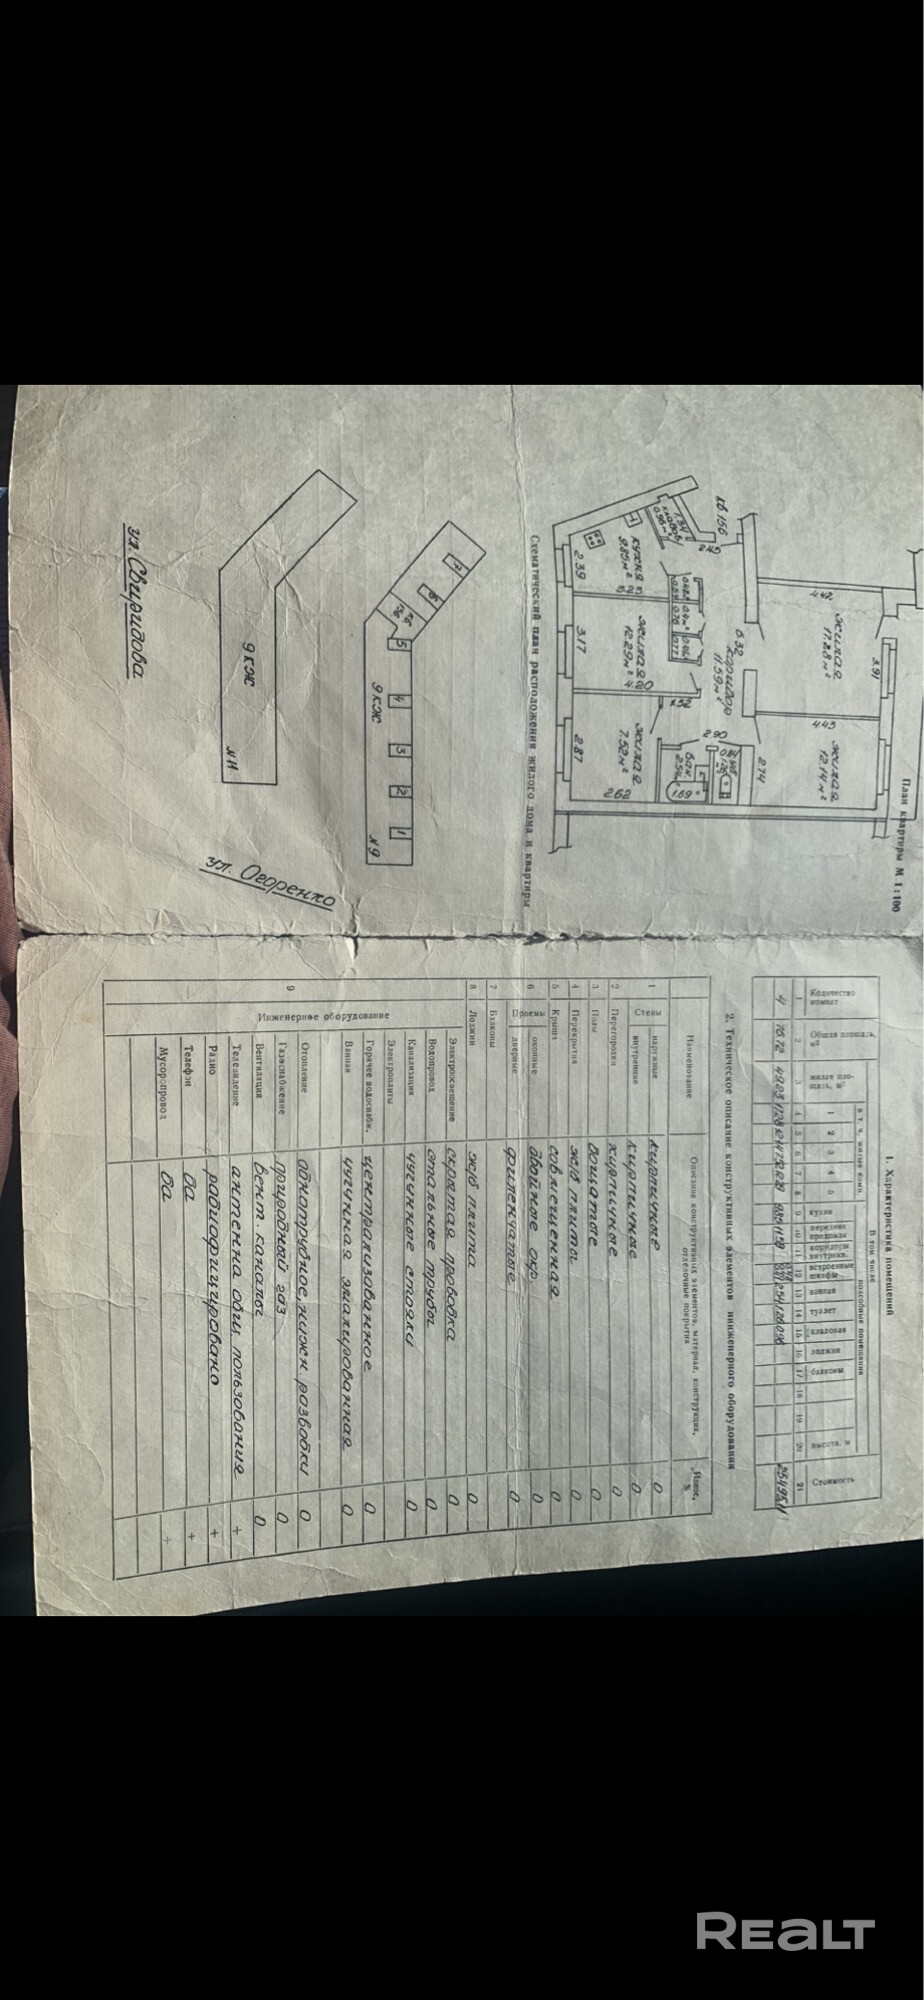 План квартиры М 1:100
3.91
4.42
жилая
17.28 м²
4.43
жилая
12.14 м²
кв.156
2.45
6.32
коридор
11.59 м²
2.90
2.74
кухня
9.85 м²
2.39
жилая
12.29 м²
3.17
4.20
жилая
7.52 м²
2.87
2.62
ван.
2.54 м²
1.69
Схематический план расположения жилого дома и квартиры
7
6
5
4
3
2
1
9 кж
N9
9 кж
N11
ул. Огоренко
ул. Свиридова
1. Характеристика помещений
Количество комнат
Общая площадь, м²
жилая площадь, м²
В том числе
в т. ч. жилые комн.
подсобные помещения
1 2 3 4 5
кухня
передняя прихожая
коридоры внутрикв.
встроенные шкафы
ванная
туалет
кладовая
лоджии
балконы
высота, м
Стоимость
1 2 3 4 5 6 7 8 9 10 11 12 13 14 15 16 17 18 19 20 21
4 76.72 49.23 17.28 12.14 7.52 12.29 9.85 11.59 2.54 1.26 0.96
2. Техническое описание конструктивных элементов и инженерного оборудования
Наименование
Описание конструктивных элементов, материал, конструкция, отделочные покрытия
Износ, %
1 Стены наружные кирпичные 0
внутренние кирпичные 0
2 Перегородки кирпичные 0
3 Полы дощатые 0
4 Перекрытия ж/б плиты 0
5 Крыша совмещенная 0
6 Проемы оконные двойные окр. 0
дверные филенчатые 0
7 Балконы
8 Лоджии ж/б плита 0
9 Инженерное оборудование
Электроосвещение скрытая проводка 0
Водопровод стальные трубы 0
Канализация чугунные стояки 0
Электроплиты
Горячее водоснабж. централизованное 0
Ванная чугунная эмалированная 0
Отопление однотрубное, нижн. разводки 0
Газоснабжение природный газ 0
Вентиляция вент. каналы 0
Телевидение антенна общ. пользования +
Радио радиофицировано +
Телефон да +
Мусоропровод да +
REALT